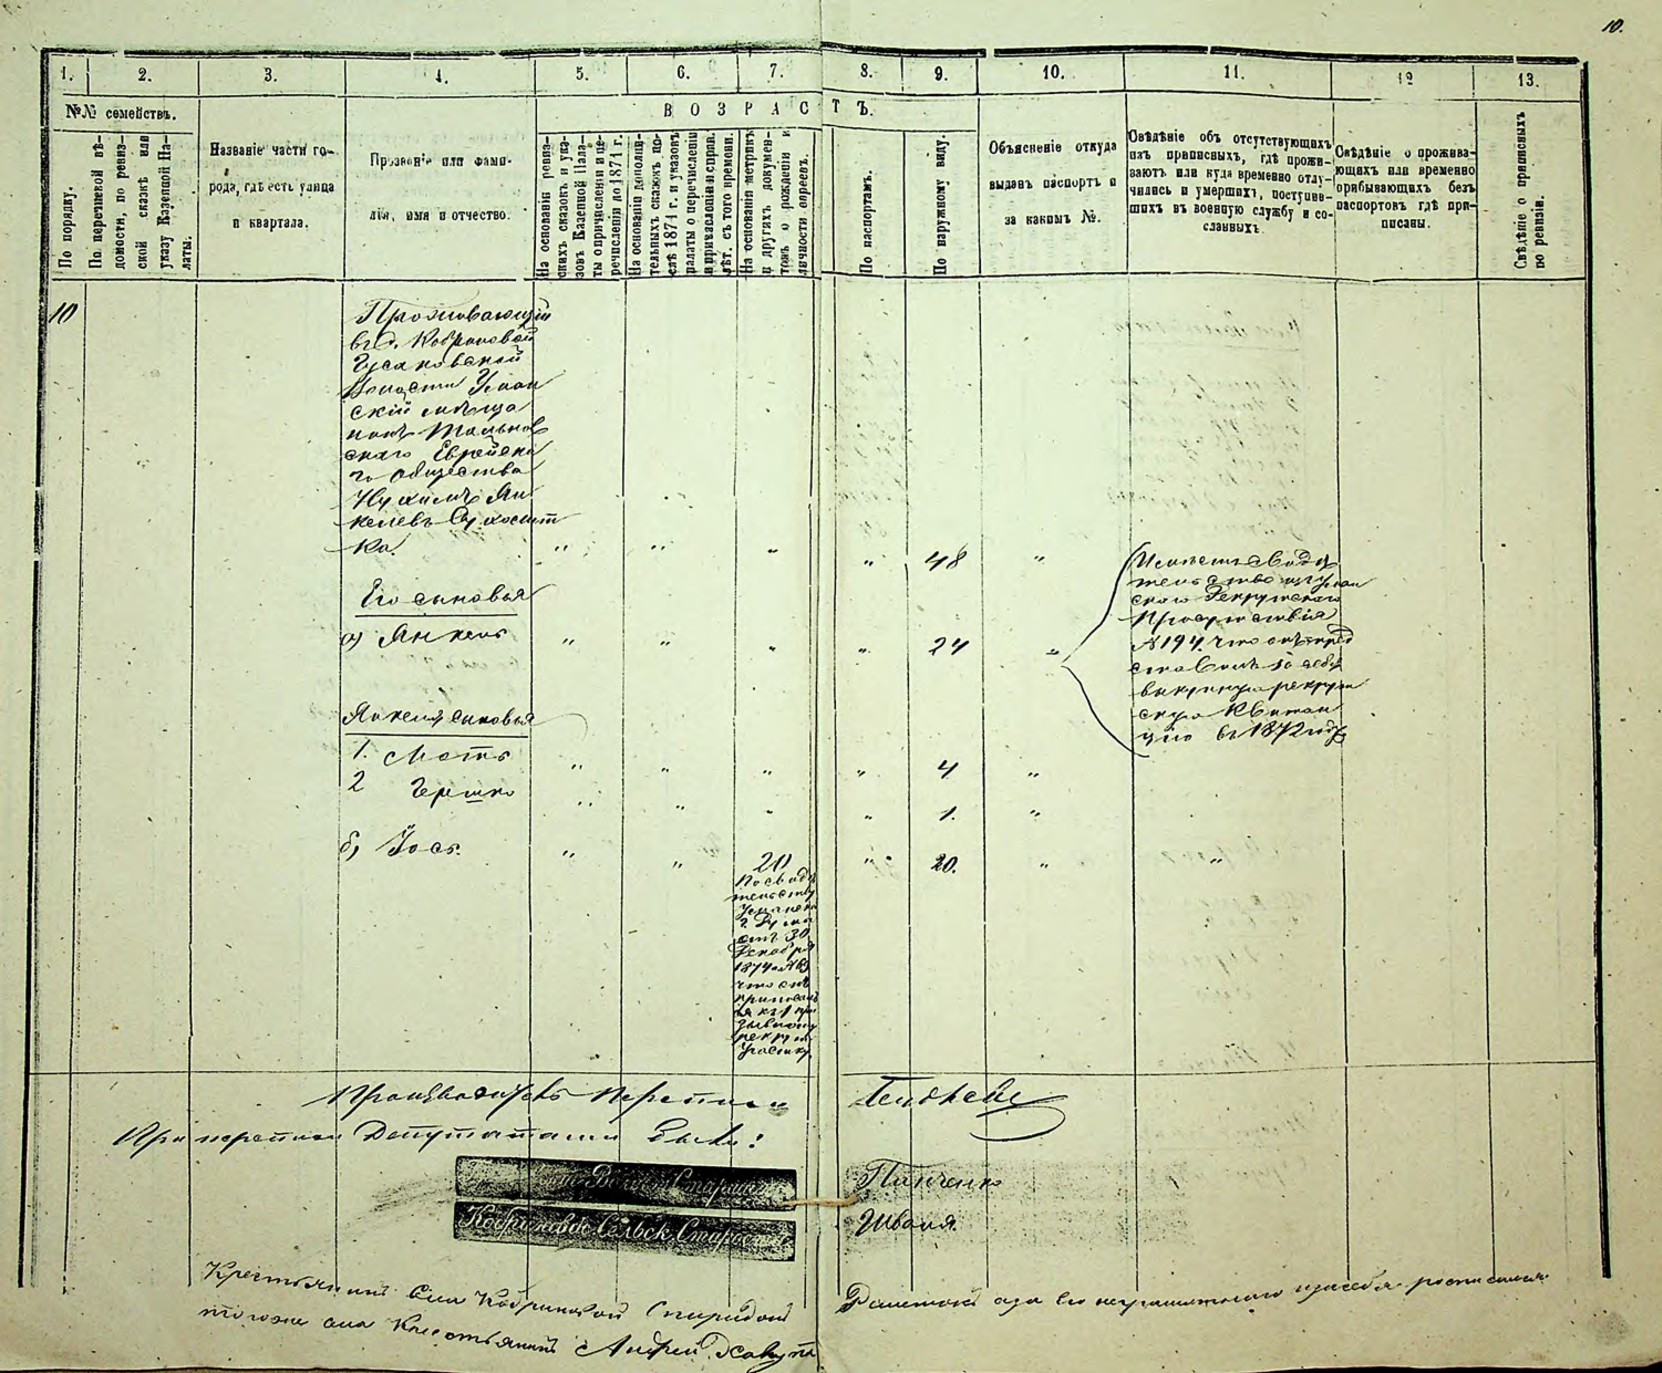 10.
1.
2.
3.
4.
5.
6.
7.
8.
9.
10.
11.
12
13.
№№ семействъ.
ВОЗРАСТЪ.
По порядку.
По перечневой вѣ-
домости, по ревиз-
ской сказкѣ или
указу Казенной Па-
латы.
Названіе части го-
рода, гдѣ есть улица
и квартала.
Прозваніе или фами-
лія, имя и отчество.
На основаніи ревиз-
скихъ сказокъ и ука-
зовъ Казенной Пала-
ты о причисленіи и пе-
речисленіи до 1874 г.
На основаніи дополни-
тельныхъ сказокъ по-
слѣ 1874 г. и указовъ
палаты о перечисленіи
и причисленіи и справ.
лѣт. съ того времени.
На основаніи метрикъ
и другихъ докумен-
товъ о рожденіи и
личности евреевъ.
По паспортамъ.
По наружному виду.
Объясненіе откуда
выданъ паспортъ и
за какимъ №.
Свѣдѣніе объ отсутствующихъ
изъ приписныхъ, гдѣ прожи-
ваютъ или куда временно отлу-
чились и умершихъ, поступив-
шихъ въ военную службу и со-
сланныхъ.
Свѣдѣніе о прожива-
ющихъ или временно
прибывающихъ безъ
паспортовъ гдѣ при-
писаны.
Свѣдѣніе о приписныхъ
по ревизіи.
10
Проживающій
въ с. Кобриновой
Гусаковской
Волости Уман
скій мѣща
нинъ Тальнов
скаго Еврейска
го общества
Нухимъ Ян
келевъ Сухосит
ка.
" " " " 48 "
Его сыновья
а) Янкель " " " " 24 "
Имѣетъ свидѣ
тельство изъ Уман
скаго Рекрутскаго
Присутствія
№ 194 что онъ пред
ставилъ за себя
выкупную рекрут
скую Квитан
цію въ 1872 году
Янкеля сыновья
1. Моть " " " " 4 "
2 Гершко " " " " 1. "
б) Іось. " " 20 " 20. " "
По свидѣ
тельству
Уманской
г. Думы
отъ 30
Декабря
1874 г. №
что онъ
приписанъ
къ 1 при
зывному
рекрут
участку
Производитель переписи
При переписи Депутатами были:
Волост. Старшина Панченко
Кобриновскій Сельск. Староста Шваня
Крестьянинъ села Кобриновой Спиридонъ
а за его неграмотнаго и за себя росписался
того же села Крестьянинъ Андрей